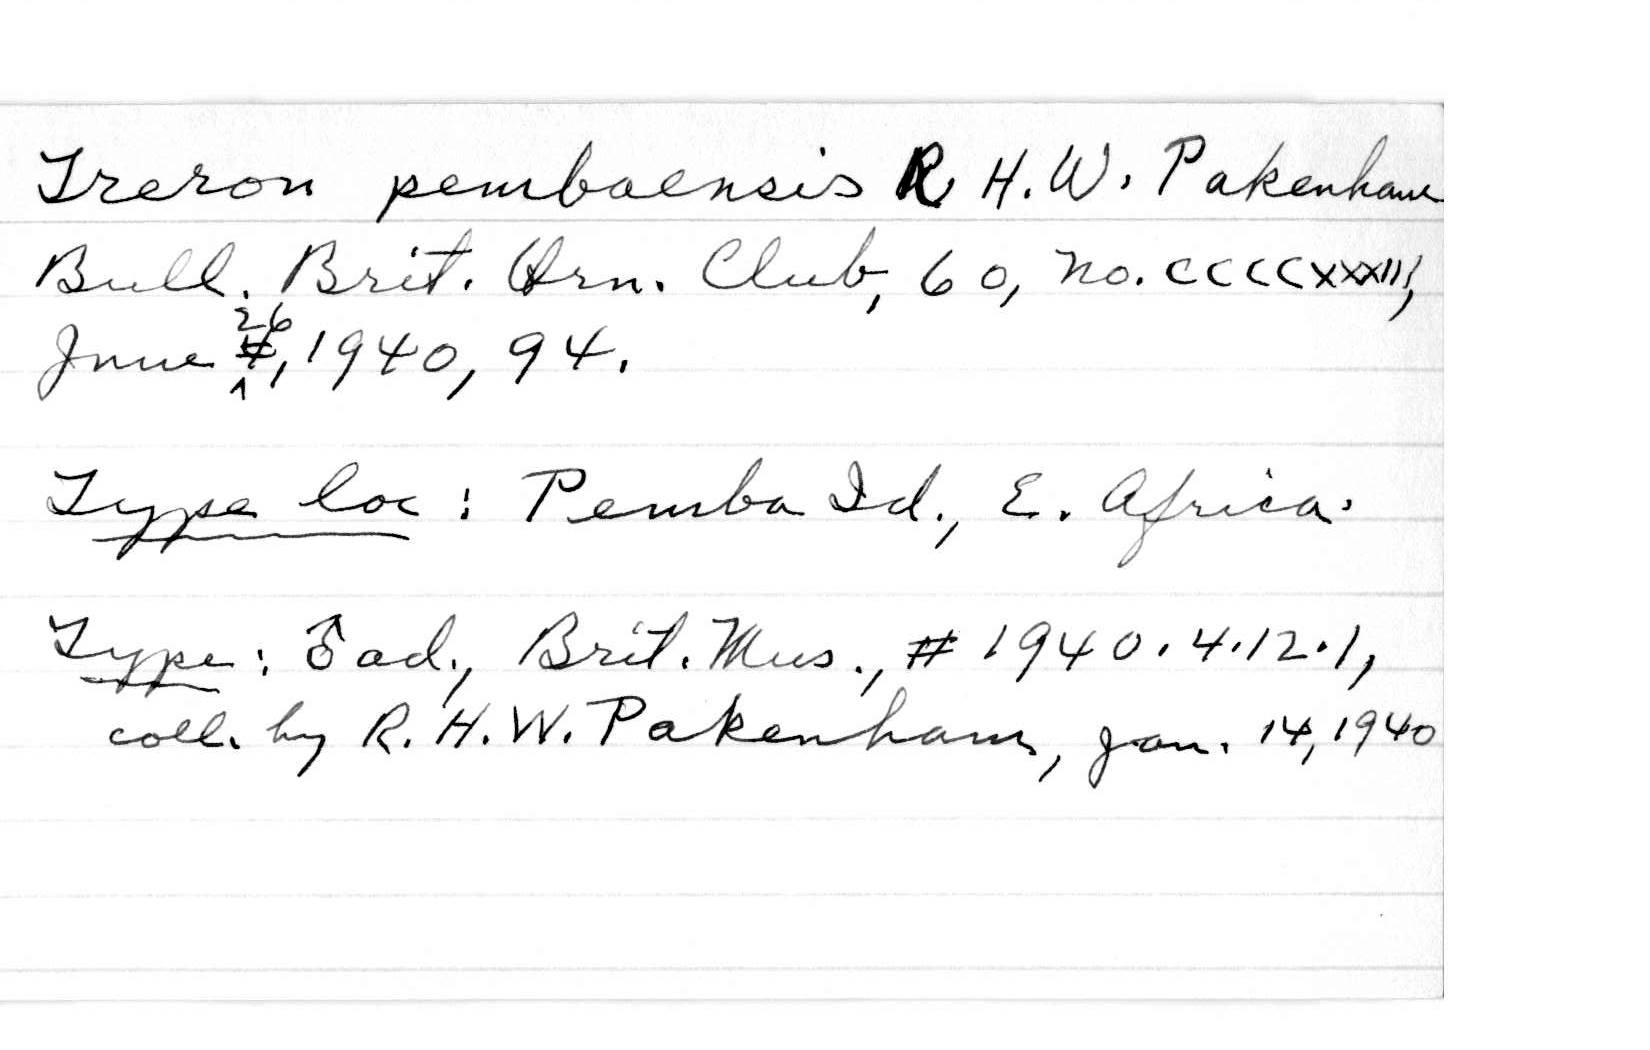 Treron pembaensis R. H. W. Pakenham
Bull. Brit. Orn. Club, 60, no. CCCCXXXIII,
June 26, 1940, 94.
Type loc: Pemba Id., E. Africa.
Type: ♂ ad., Brit. Mus., # 1940.4.12.1,
coll. by R. H. W. Pakenham, Jan. 14, 1940